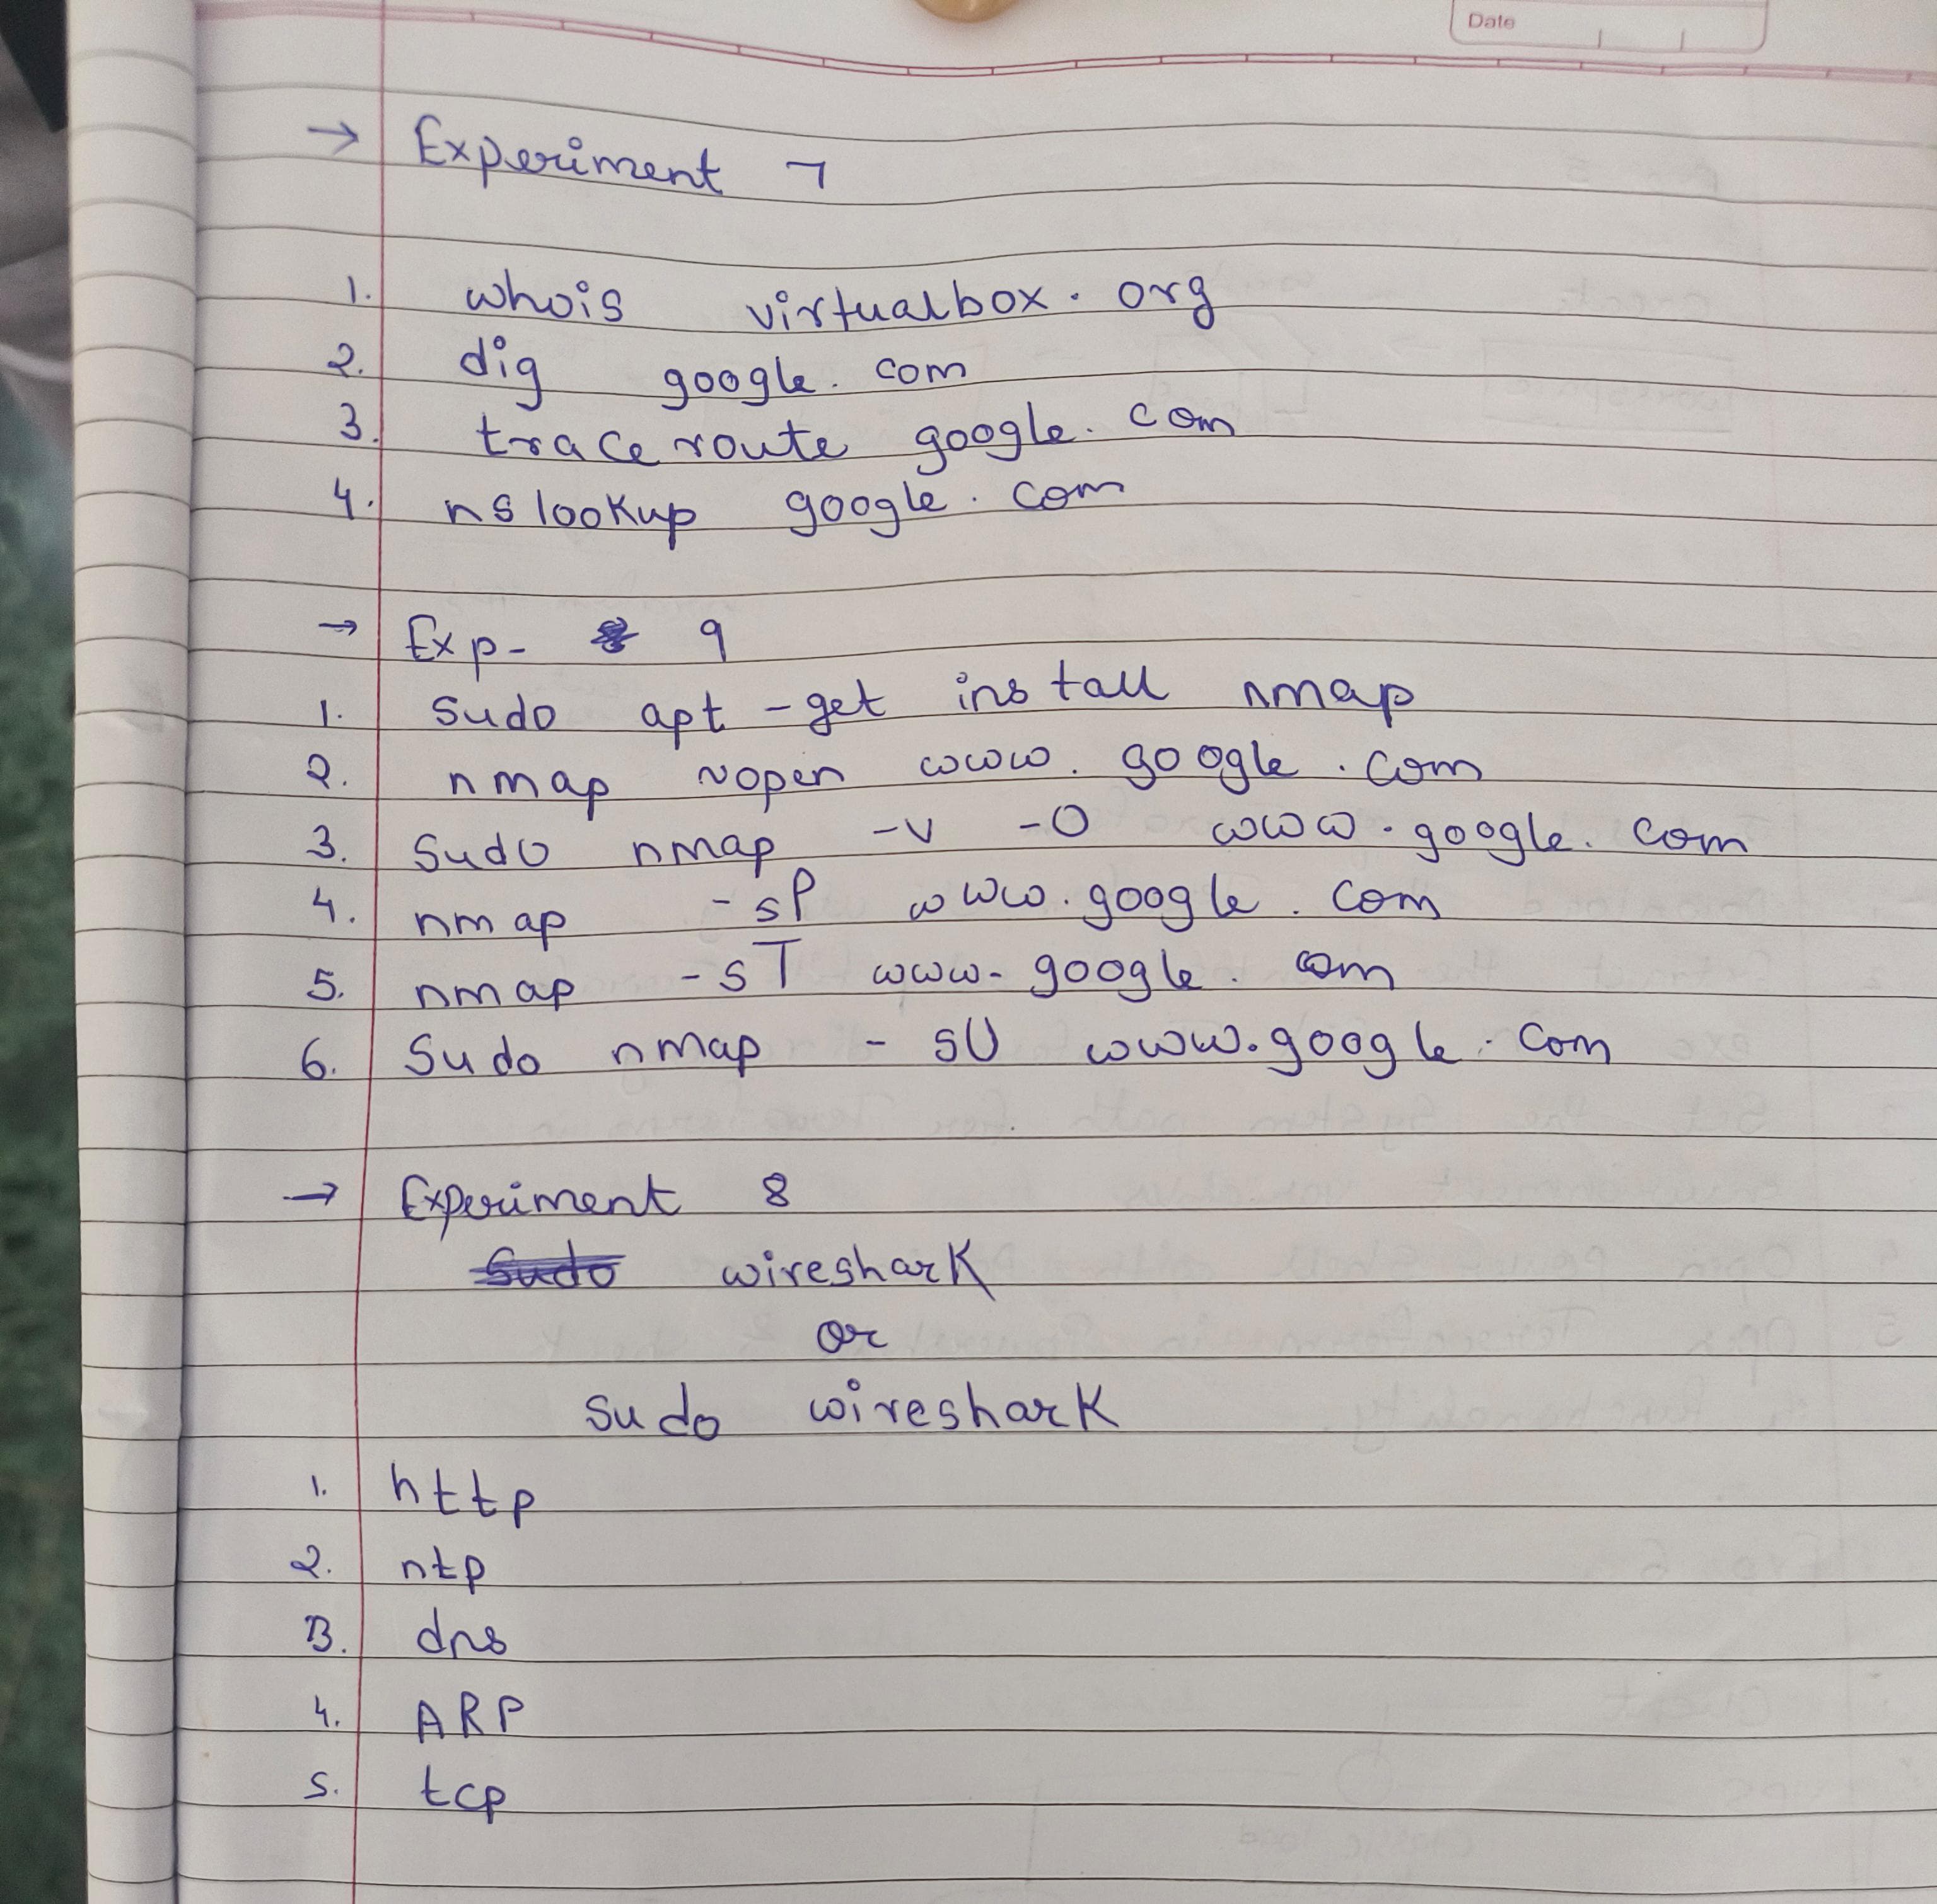 Date
→ Experiment 7
1. whois virtualbox.org
2. dig google.com
3. traceroute google.com
4. nslookup google.com
→ Exp- 9
1. sudo apt-get install nmap
2. nmap nopen www.google.com
3. Sudo nmap -v -O www.google.com
4. nmap -sP www.google.com
5. nmap -sT www.google.com
6. Sudo nmap -sU www.google.com
→ Experiment 8
Sudo wireshark
or
sudo wireshark
1. http
2. ntp
3. dns
4. ARP
5. tcp